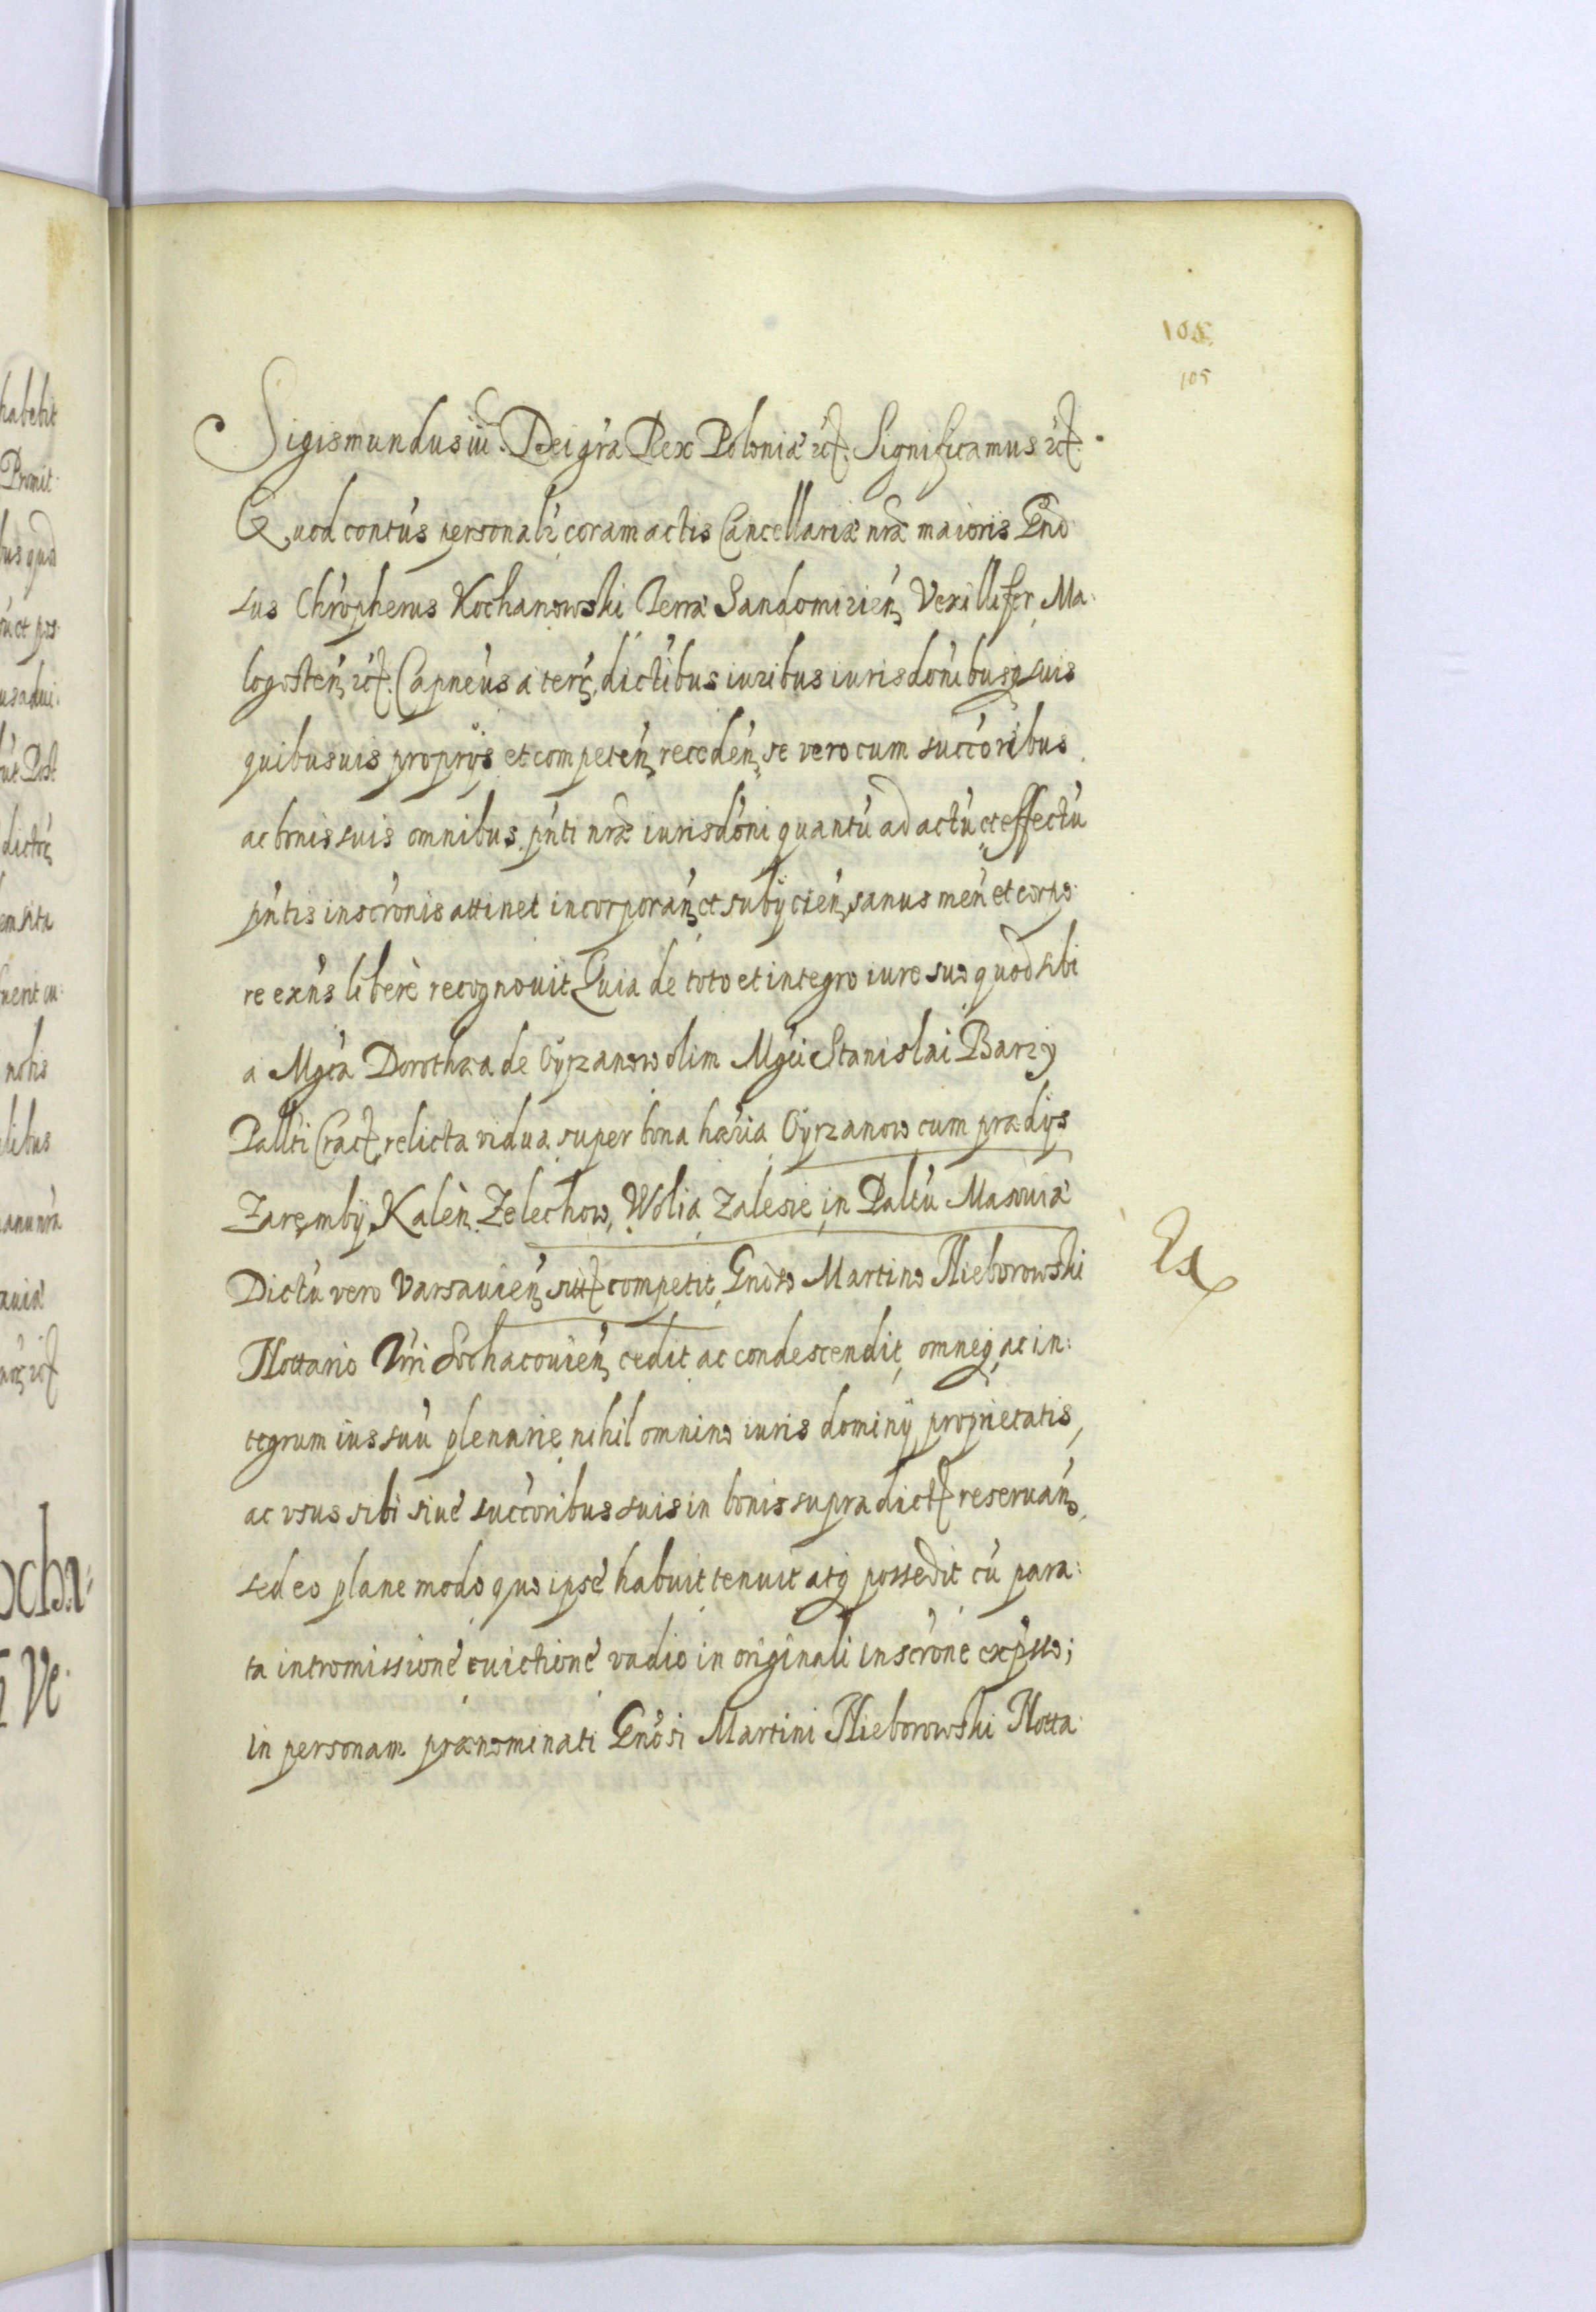 105
105
Sigismundus iii. Dei gr̃a Rex Poloniæ etc. Significamus etc.
Quod contůs personalr̃ coram actis Cancellariæ nr̃æ maioris Gño
sus Chr̃opherus Kochanowski Terræ Sandomirień Vexillifer, Ma:
logosteń etc. Capneůs a terŕ, dict̃ibus iuribus iurisdoñibusq suis
quibusuis proprijs et competeń recedeń, se vero cum succ̃oribus
ac bonis suis omnibus pńti nr̃æ iurisdo᷃ni quantũ ad actũ et effectũ
pńtis inscr̃onis attinet incorporań et subijcień, sanus meń et corpo:
re exńs liberè recognouit Quia de toto et integro iure suo quod sibi
a Mgc̃a Dorothæa de Oÿrzanow olim Mgc̃i Stanislai Barzÿ
Pallt̃i Crac relicta vidua super bona hær̃ia Oÿrzanow cum prædijs
Zaręmbÿ, Kaleǹ, Zelechow, Wolia Zalesie in Palt̃u Masouiæ
Dictũ vero Varsauień sitt competit Gnõso Martino Nieborowski
Nottario Tr̃ri Sochacouień cedit ac condescendit, omneq, ac in:
tegrum ius suũ plenarie nihil omnino iuris dominij proprietatis,
ac vsus sibi siue succ̃oribus suis in bonis supra dict reseruań,
sed eo plane modo quo ipse habuit tenuit atq possedit cũ para:
ta intromissione euictione vadio in originali inscr̃one expr̃sso;
in personam prænominati Gnõsi Martini Nieborowski Notta: